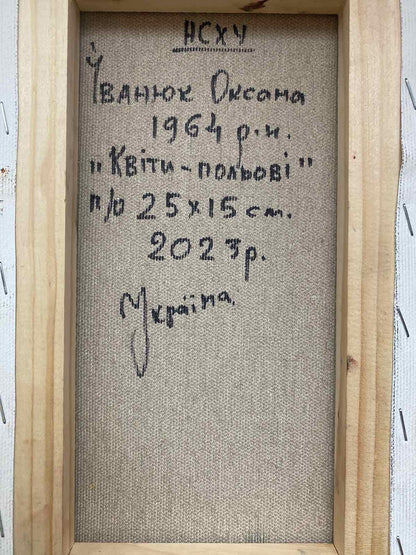 НСХУ
Іванюк Оксана
1964 р.н.
„Квіти-польові"
п/о 25х15см.
2023р.
Україна